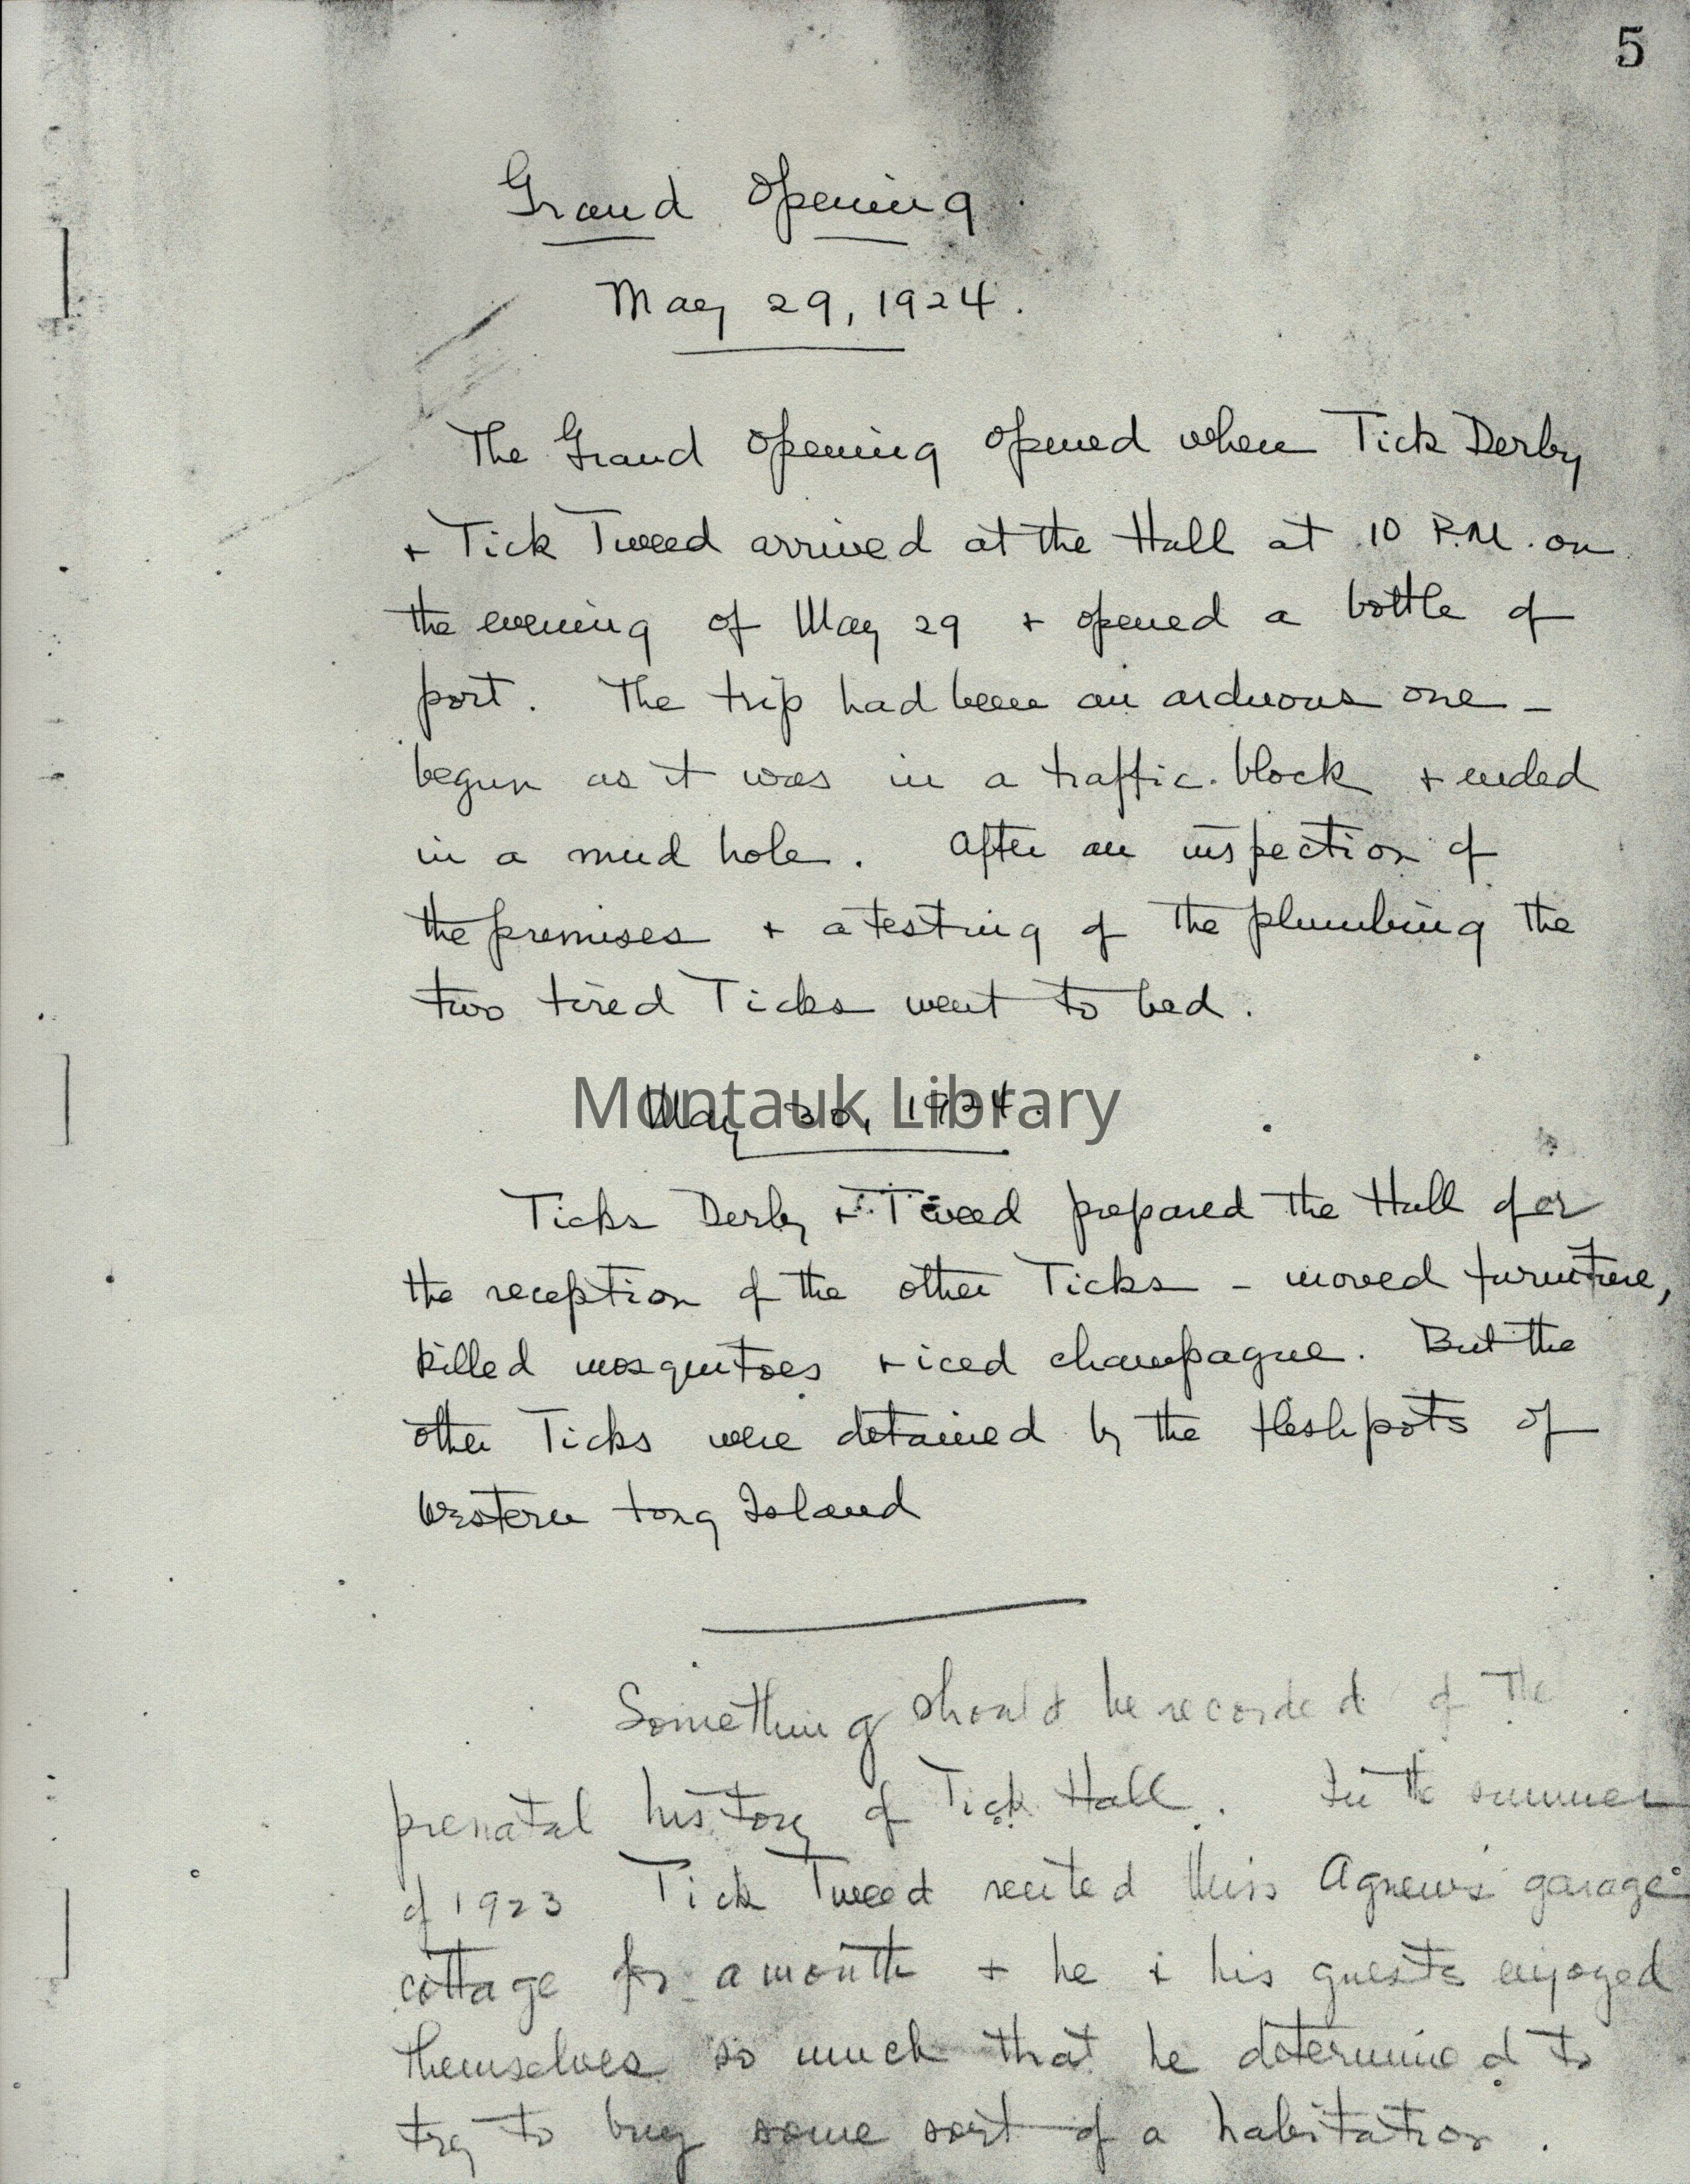 5
Grand Opening
May 29, 1924.
The Grand Opening opened when Tick Derby
+ Tick Tweed arrived at the Hall at 10 P.M. on
the evening of May 29 + opened a bottle of
port. The trip had been an arduous one –
begun as it was in a traffic block + ended
in a mud hole. After an inspection of
the premises + a testing of the plumbing the
two tired Ticks went to bed.
May 30, 1924.
Montauk Library
Ticks Derby + Tweed prepared the Hall for
the reception of the other Ticks – moved furniture,
killed mosquitoes + iced champagne. But the
other Ticks were detained by the fleshpots of
Western Long Island
Something should be recorded of the
prenatal history of Tick Hall. In the summer
of 1923 Tick Tweed rented Agnew's garage
cottage for a month + he + his guests enjoyed
themselves so much that he determined to
try to buy some sort of a habitation.